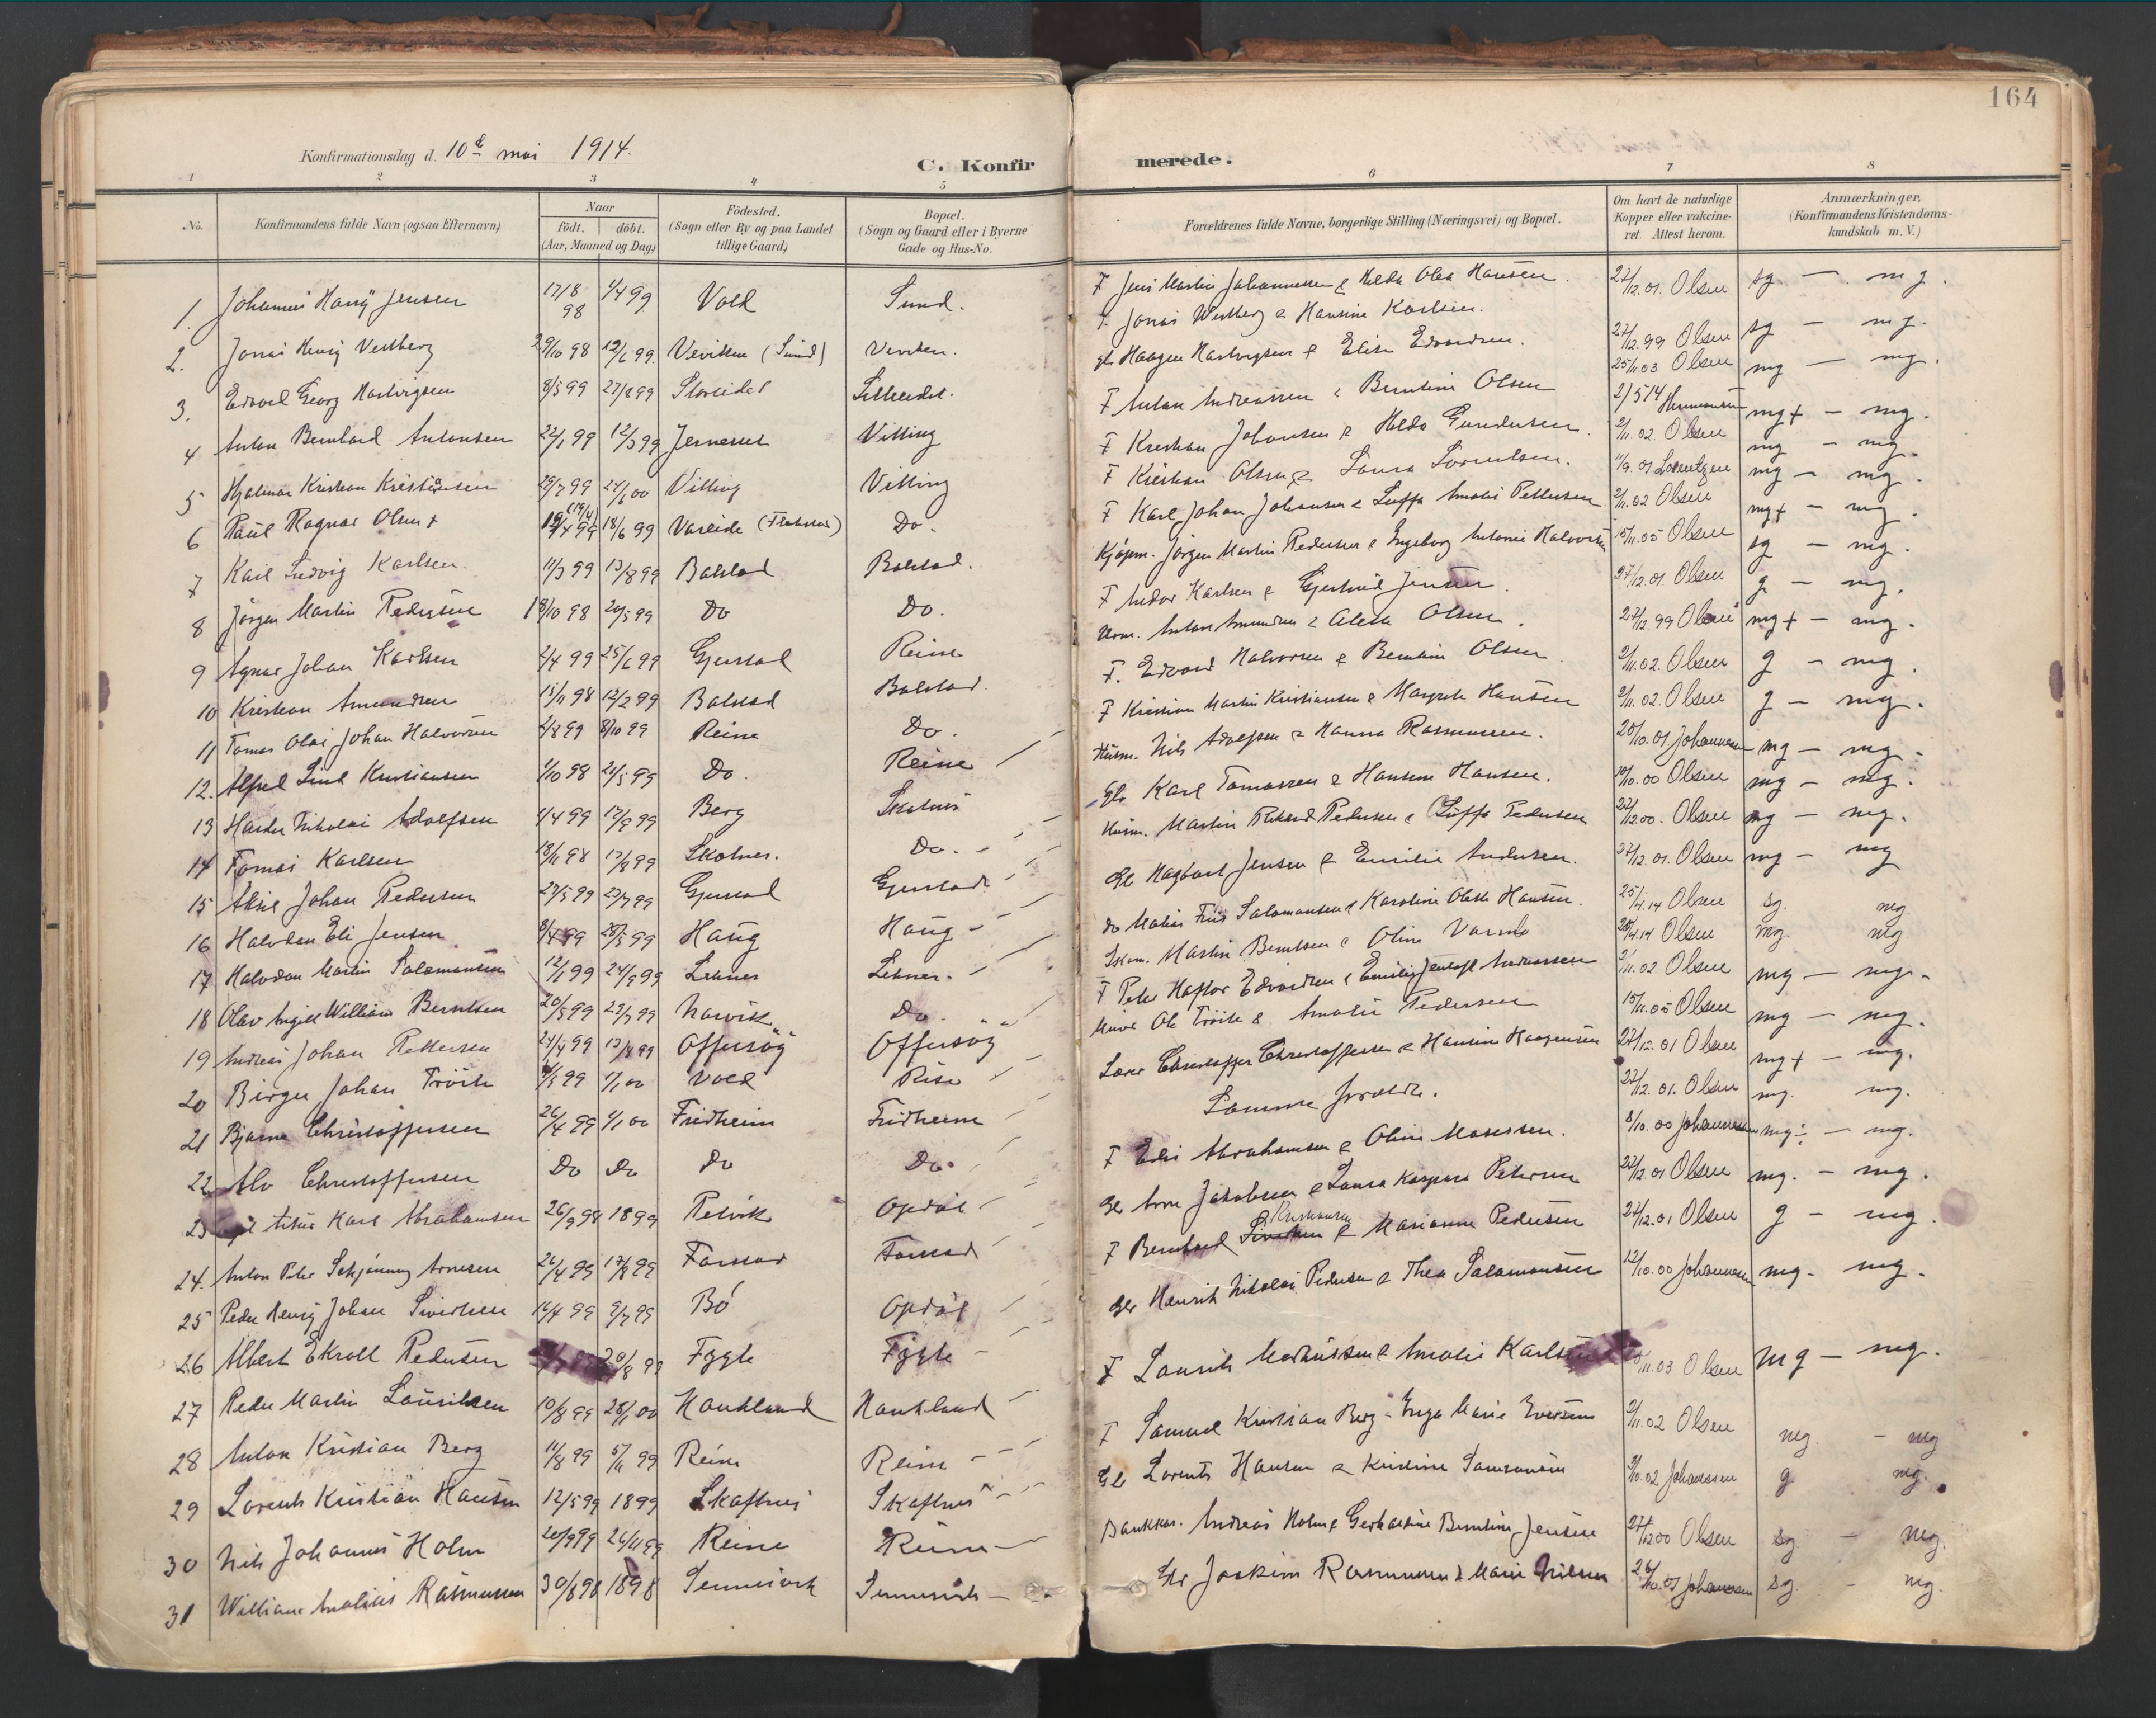 164
Konfirmationsdag d. 10de mai 1914.
C. Konfirmerede.
1 2 3 4 5 6 7 8
No.
Konfirmandens fulde Navn (ogsaa Efternavn)
Naar
födt. döbt.
(Aar, Maaned og Dag)
Födested.
(Sogn eller By og paa Landet
tillige Gaard)
Bopæl.
(Sogn og Gaard eller i Byerne
Gade og Hus-No.
Forældrenes fulde Navne, borgerlige Stilling (Næringsvei) og Bopæl.
Om havt de naturlige
Kopper eller vakcine-
ret. Attest herom.
Anmærkninger.
(Konfirmandens Kristendoms-
kundskab m. V.)
1. Johannes Harry Jensen 17/8 98 4/4 99 Vold Sund. F Jens Martin Johannessen & Hilda Olea Hansen. 27/12.01. Olsen sg — mg.
2. Jonas Henry Vestberg 29/10 98 12/6 99 Veviken (Sund) Veviken. F. Jonas Westberg & Hansine Karlsen. 27/12.99 Olsen sg — mg.
3. Edvard Georg Hartvigsen 8/5 99 27/8 99 Storeidet Lilleeidet. gb Haagen Hartvigsen & Elise Edvardsen. 25/11.03 Olsen mg — mg.
4 Anton Bernhard Antonsen 22/1 99 12/3 99 Jernesset Vitting F Anton Andreassen & Berntine Olsen 2/5 14 Hermansen mg+ — mg.
5 Hjalmar Kristian Kristiansen 29/7 99 24/6 00 Vitting Vitting F Kristian Johansen & Hilda Gundersen. 2/11.02. Olsen mg — mg.
6 Paul Ragnar Olsen + 18/6 99 Vareide (Flakstad) Do. F Kristian Olsen & Laura Lorentsen. 11/9.01 Lorentzen mg — mg.
7 Karl Ludvig Karlsen 11/3 99 13/8 99 Balstad Balstad. F Karl Johan Johansen & Luffa Amalie Pettersen 2/11.02 Olsen mg+ — mg.
8 Jörgen Martin Pedersen 18/10 98 24/5 99 Do Do. Kjöpm. Jörgen Martin Pedersen & Ingeborg Antonie Halvorsen 15/11.05 Olsen sg — mg.
9 Agnar Johan Karlsen 2/4 99 25/6 99 Gjerstad Reine F Andor Karlsen & Gjertrud Jensen. 27/12.01. Olsen g — mg.
10 Kristian Amundsen 15/11 98 12/2 99 Balstad Balstad. Anton Amundsen & Aletta Olsen. 27/12.99 Olsen mg+ — mg.
11 Tomas Olai Johan Halvorsen 2/8 99 8/10 99 Reine Do. F. Edvard Halvorsen & Berntine Olsen 2/11.02. Olsen g — mg.
12. Alfred Lind Kristiansen 1/10 98 24/5 99 Do. Reine F Kristian Martin Kristiansen & Margrete Hansen 2/11.02. Olsen g — mg.
13 Nikolai Adolfsen 4/4 99 17/9 99 Berg Skotnes Husm. Nils Adolfsen & Hanna Rasmussen. 20/10.01 Johannessen mg — mg.
14 Tomas Karlsen 18/11 98 17/9 99 Skotnes. Do. Gb Karl Tomassen & Hansine Hansen. 10/10.00 Olsen mg — mg.
15 Aksel Johan Pedersen 27/5 99 23/7 99 Gjerstad Gjerstad Husm. Martin Rikard Pedersen & Luffa Pedersen 27/12.00. Olsen mg — mg.
16 Halvdan Eli Jensen 8/4 99 28/5 99 Haug Haug Gb Hagbart Jensen & Emilie Andersen. 27/12.01. Olsen mg — mg
17 Halvdan Martin Salamonsen 12/1 99 24/9 99 Leknes Leknes. Do Matias Friis Salamonsen & Karoline Oleste Hansen. 25/4.14 Olsen sg. mg
18 Olav William Berntsen 20/5 99 29/7 99 Narvik Do. Martin Berntsen & Oline Varmo 25/4.14 Olsen mg. mg
19 Andreas Johan Pettersen 24/4 99 13/8 99 Offersöy Offersöy F Peter Haftor Edvardsen & Emilie Jentoft Andreassen 2/11.02 Olsen mg — mg.
20 Birger Johan Tröite 99 1/1 00 Vold Rise Ole Tröite & Amalie Pedersen 15/11.05 Olsen mg — mg.
21 Bjarne Christoffersen 26/4 99 4/1 00 Fridheim Fridheim Lærer Christoffer Christoffersen & Hansine Haagensen 27/12.01 Olsen mg+ — mg.
22 Alv Christoffersen Do Do Do Do. Samme forældre. 27/12.01. Olsen mg. mg.
23 Karl Abrahamsen 26/9 98 1899 Petvik Opdöl F Edis Abrahamsen & Oline Mosessen. 8/10.00 Johannessen mg÷ — mg.
24. Anton Peter Schjönning Arnesen 26/4 99 17/9 99 Farstad Farstad Gb Arne Jakobsen & Laura Kaspara Petersen 27/12.01 Olsen mg. — mg.
25 Peder Henry Johan Sivertsen 16/4 99 9/7 99 Bö Opdöl F Bernhard Kristiansen & Marianne Pedersen 27/12.01 Olsen g — mg.
26 Albert Ekroll Pedersen 20/8 99 Fygle Fygle Gb Henrik Nikolai Pedersen & Thea Salamonsen 12/10.00 Johannessen mg. mg.
27 Peder Martin Lauritsen 10/8 99 28/1 00 Haukland Haukland F Laurits Markussen & Amalie Karlsen 11.03 Olsen mg — mg.
28 Anton Kristian Berg 11/8 99 5/11 99 Reine Reine F Samuel Kristian Berg & Inga Marie Eversen 2/11.02 Olsen mg. — mg
29 Lorents Kristian Hansen 12/5 99 1899 Skaftnes Skaftnes Gb Lorents Hansen & Kristine Samsonsen 9/10.02 Johanssen g mg.
30 Nils Johannes Holm 20/9 99 26/11 99 Reine Reine Bankkas. Andreas Holm & Gerhardine Berntine Jensen 27/12.00 Olsen sg. — mg.
31 William Rasmussen 30/8 98 1898 Sennesvik Sennesvik Gb Joakim Rasmussen & Marie Nilsen 26/10.01 Johanssen sg. — mg.